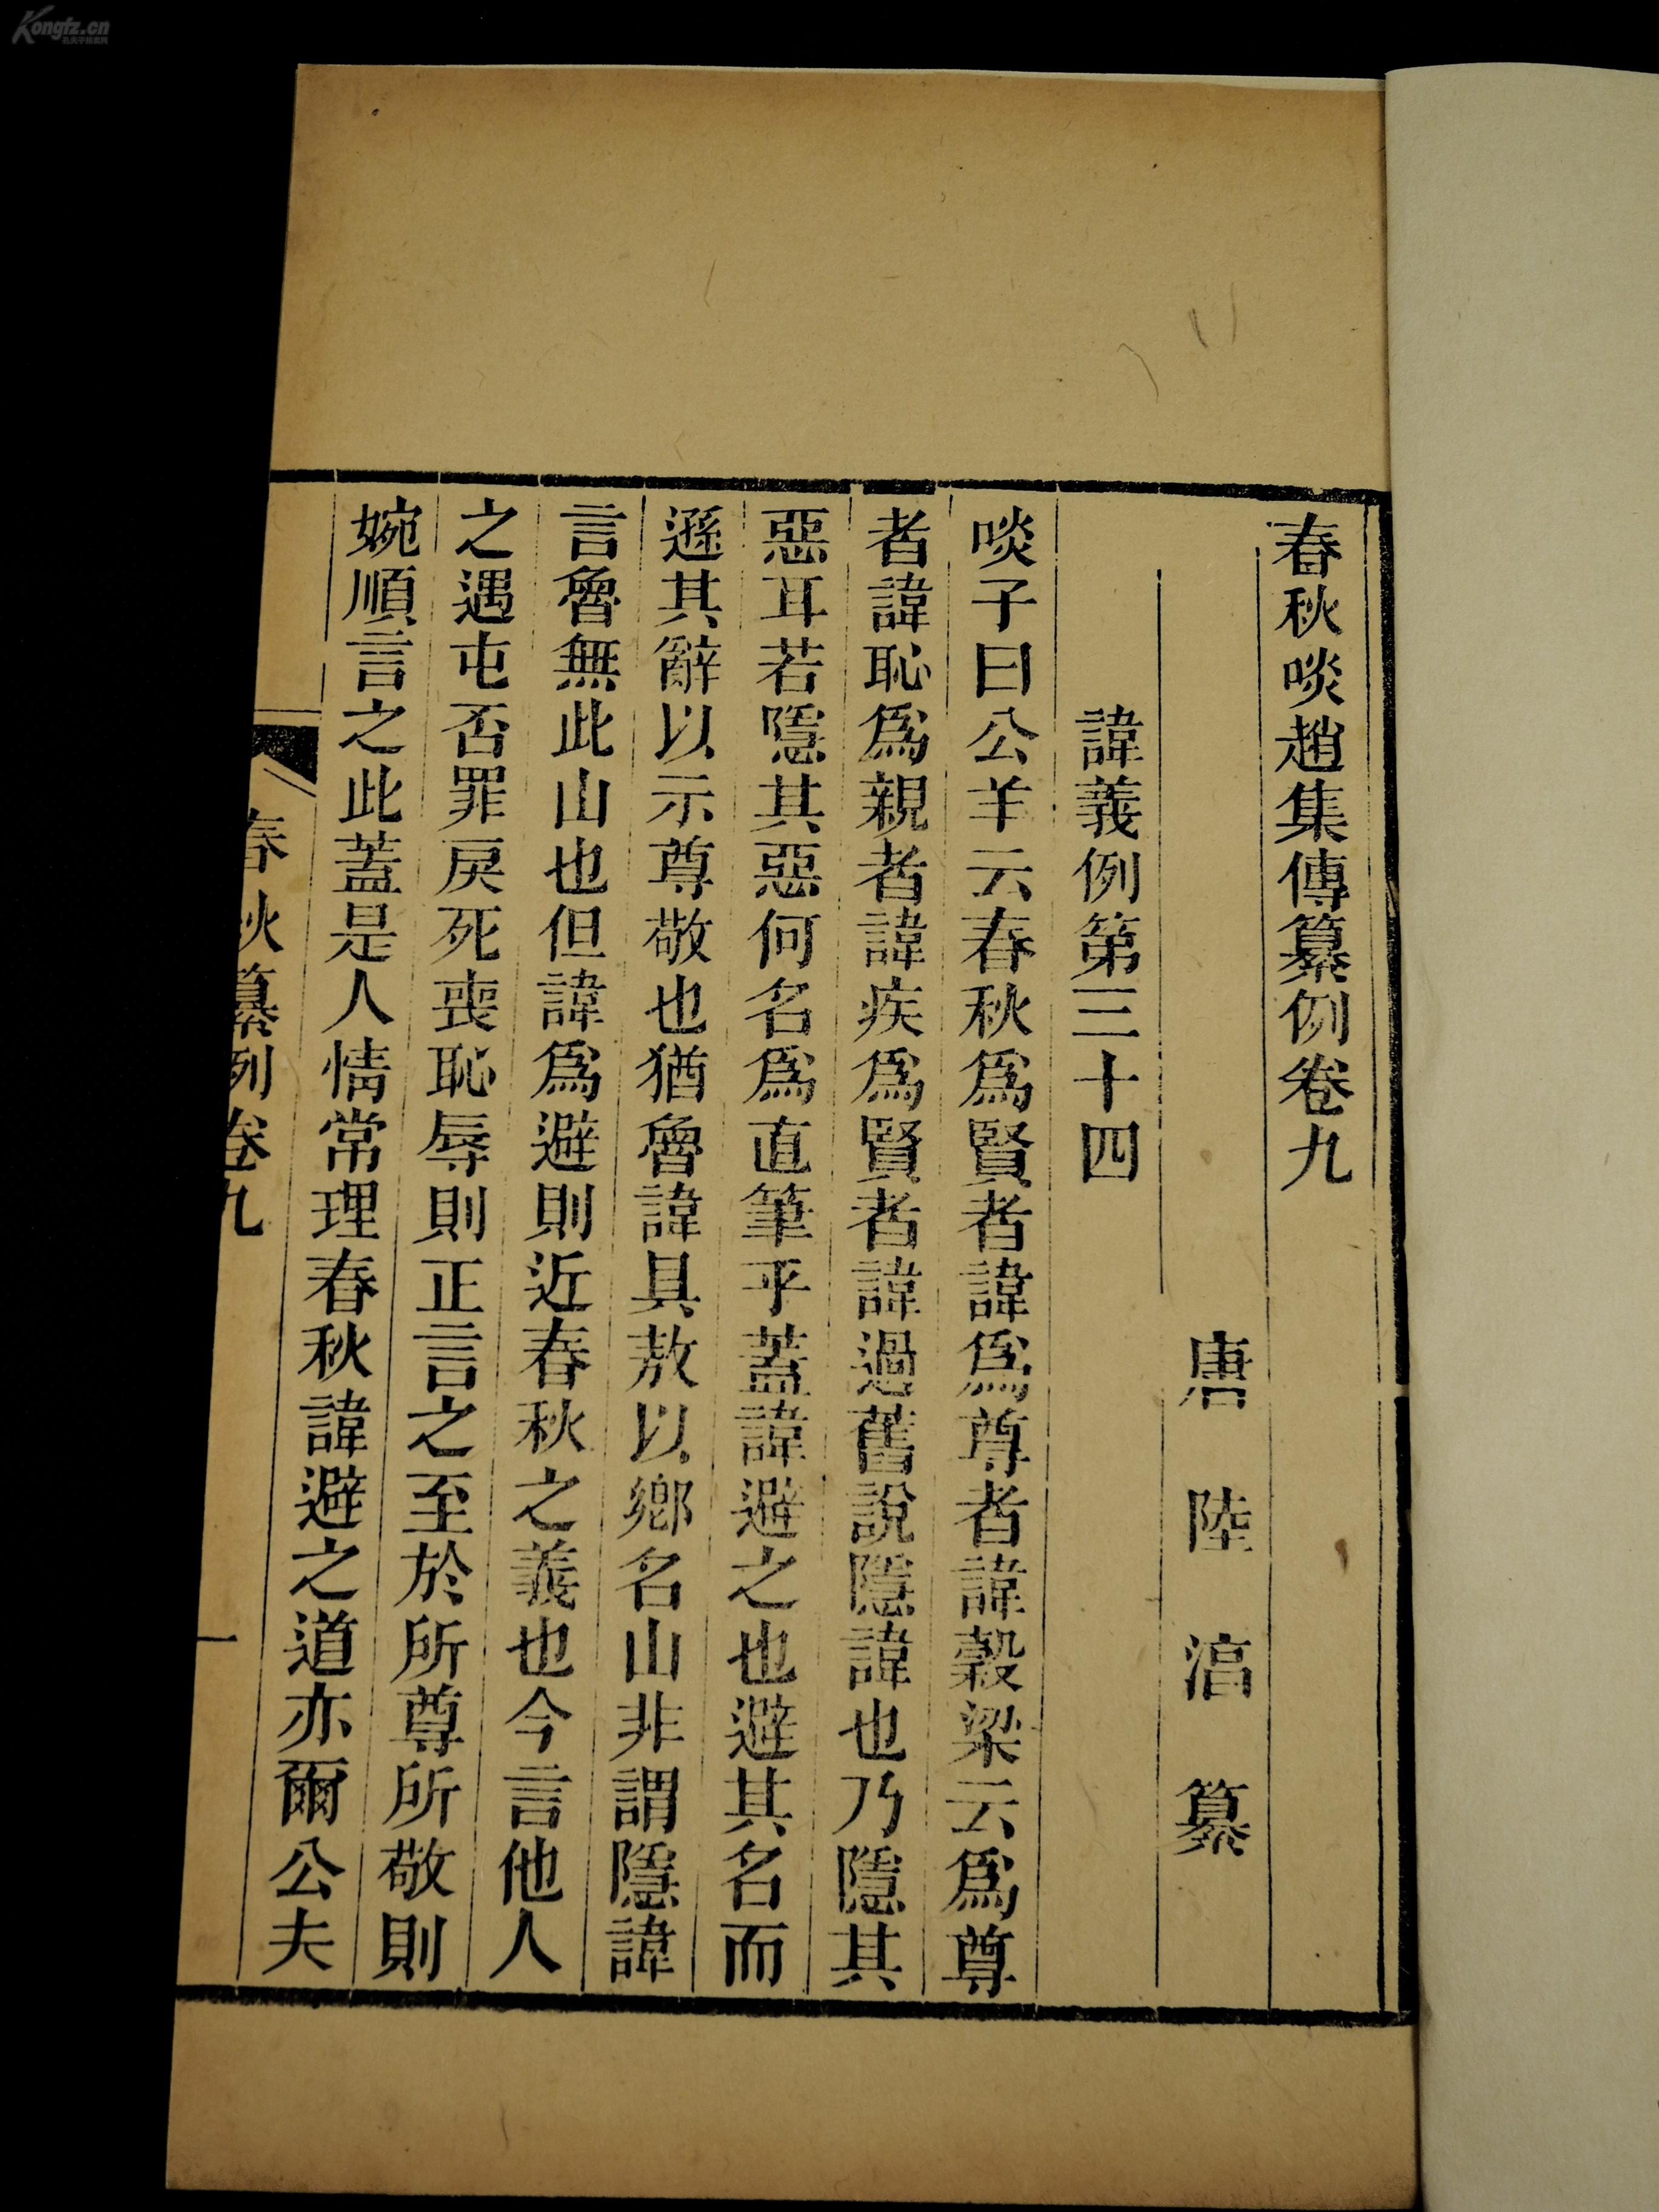 春秋啖趙集傳纂例卷九
唐陸淳纂
諱義例第三十四
啖子曰公羊云春秋爲賢者諱爲尊者諱穀梁云爲尊
者諱恥爲親者諱疾爲賢者諱過舊說隱諱也乃隱其
惡耳若隱其惡何名爲直筆乎蓋諱避之也避其名而
遜其辭以示尊敬也猶魯諱具敖以鄉名山非謂隱諱
言魯無此山也但諱爲避則近春秋之義也今言他人
之遇屯否罪戾死喪恥辱則正言之至於所尊所敬則
婉順言之此蓋是人情常理春秋諱避之道亦爾公夫
春秋纂例卷九
一
Kongfz.cn
孔夫子旧书网